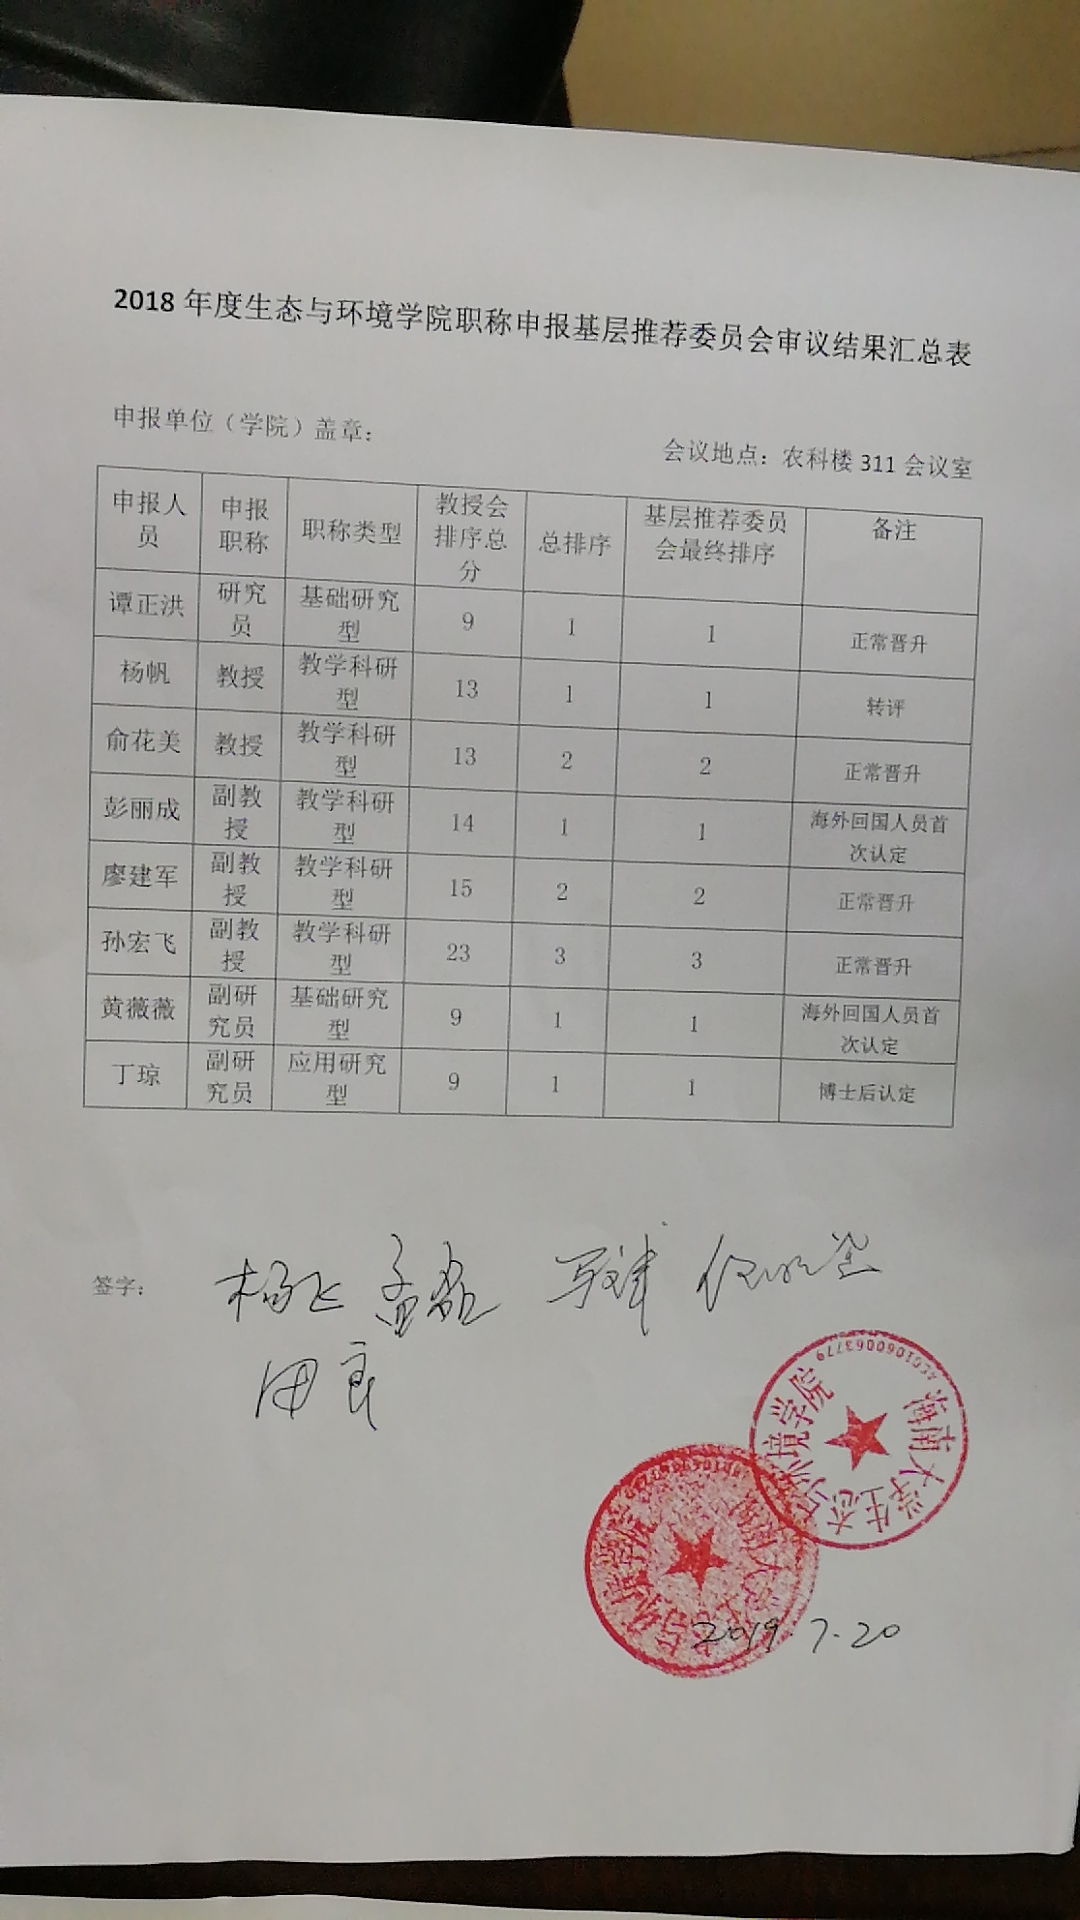 2018 年度生态与环境学院职称申报基层推荐委员会审议结果汇总表
申报单位（学院）盖章：
会议地点：农科楼 311 会议室
申报人员 申报职称 职称类型 教授会排序总分 总排序 基层推荐委员会最终排序 备注
谭正洪 研究员 基础研究型 9 1 1 正常晋升
杨帆 教授 教学科研型 13 1 1 转评
俞花美 教授 教学科研型 13 2 2 正常晋升
彭丽成 副教授 教学科研型 14 1 1 海外回国人员首次认定
廖建军 副教授 教学科研型 15 2 2 正常晋升
孙宏飞 副教授 教学科研型 23 3 3 正常晋升
黄薇薇 副研究员 基础研究型 9 1 1 海外回国人员首次认定
丁琼 副研究员 应用研究型 9 1 1 博士后认定
签字： 杨飞 孟磊
海南大学生态与环境学院
2019.7.20